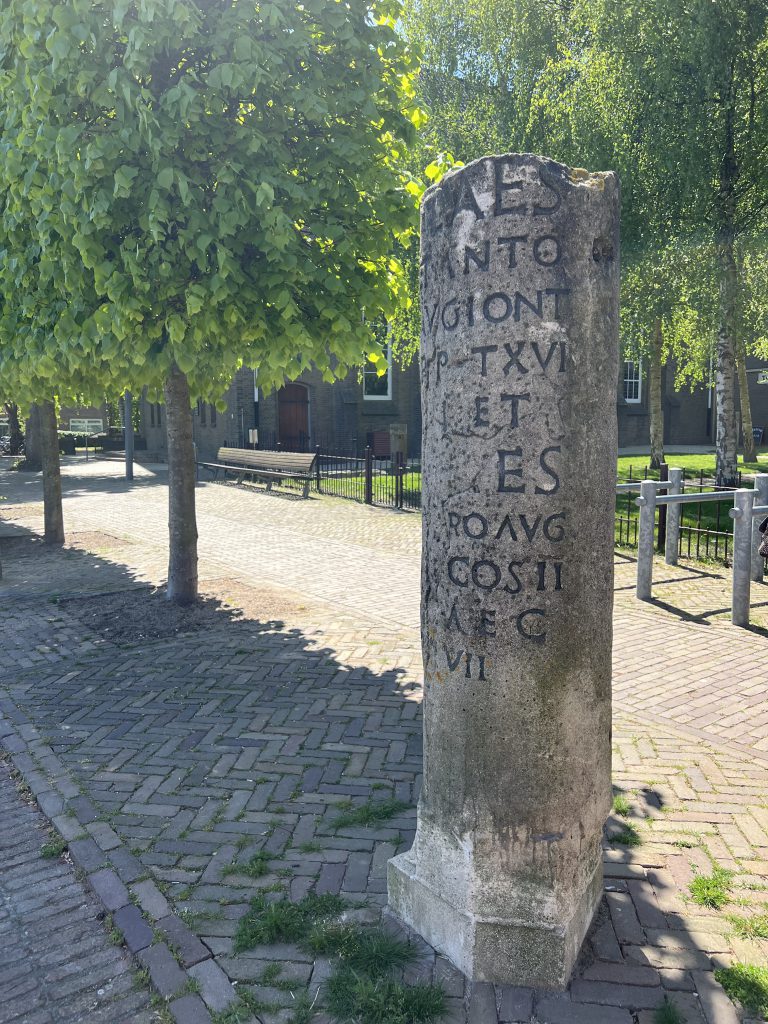 AES
ANTO
VGIONT
P TXVI
ET
ES
ROAVG
COSII
AEC
VII